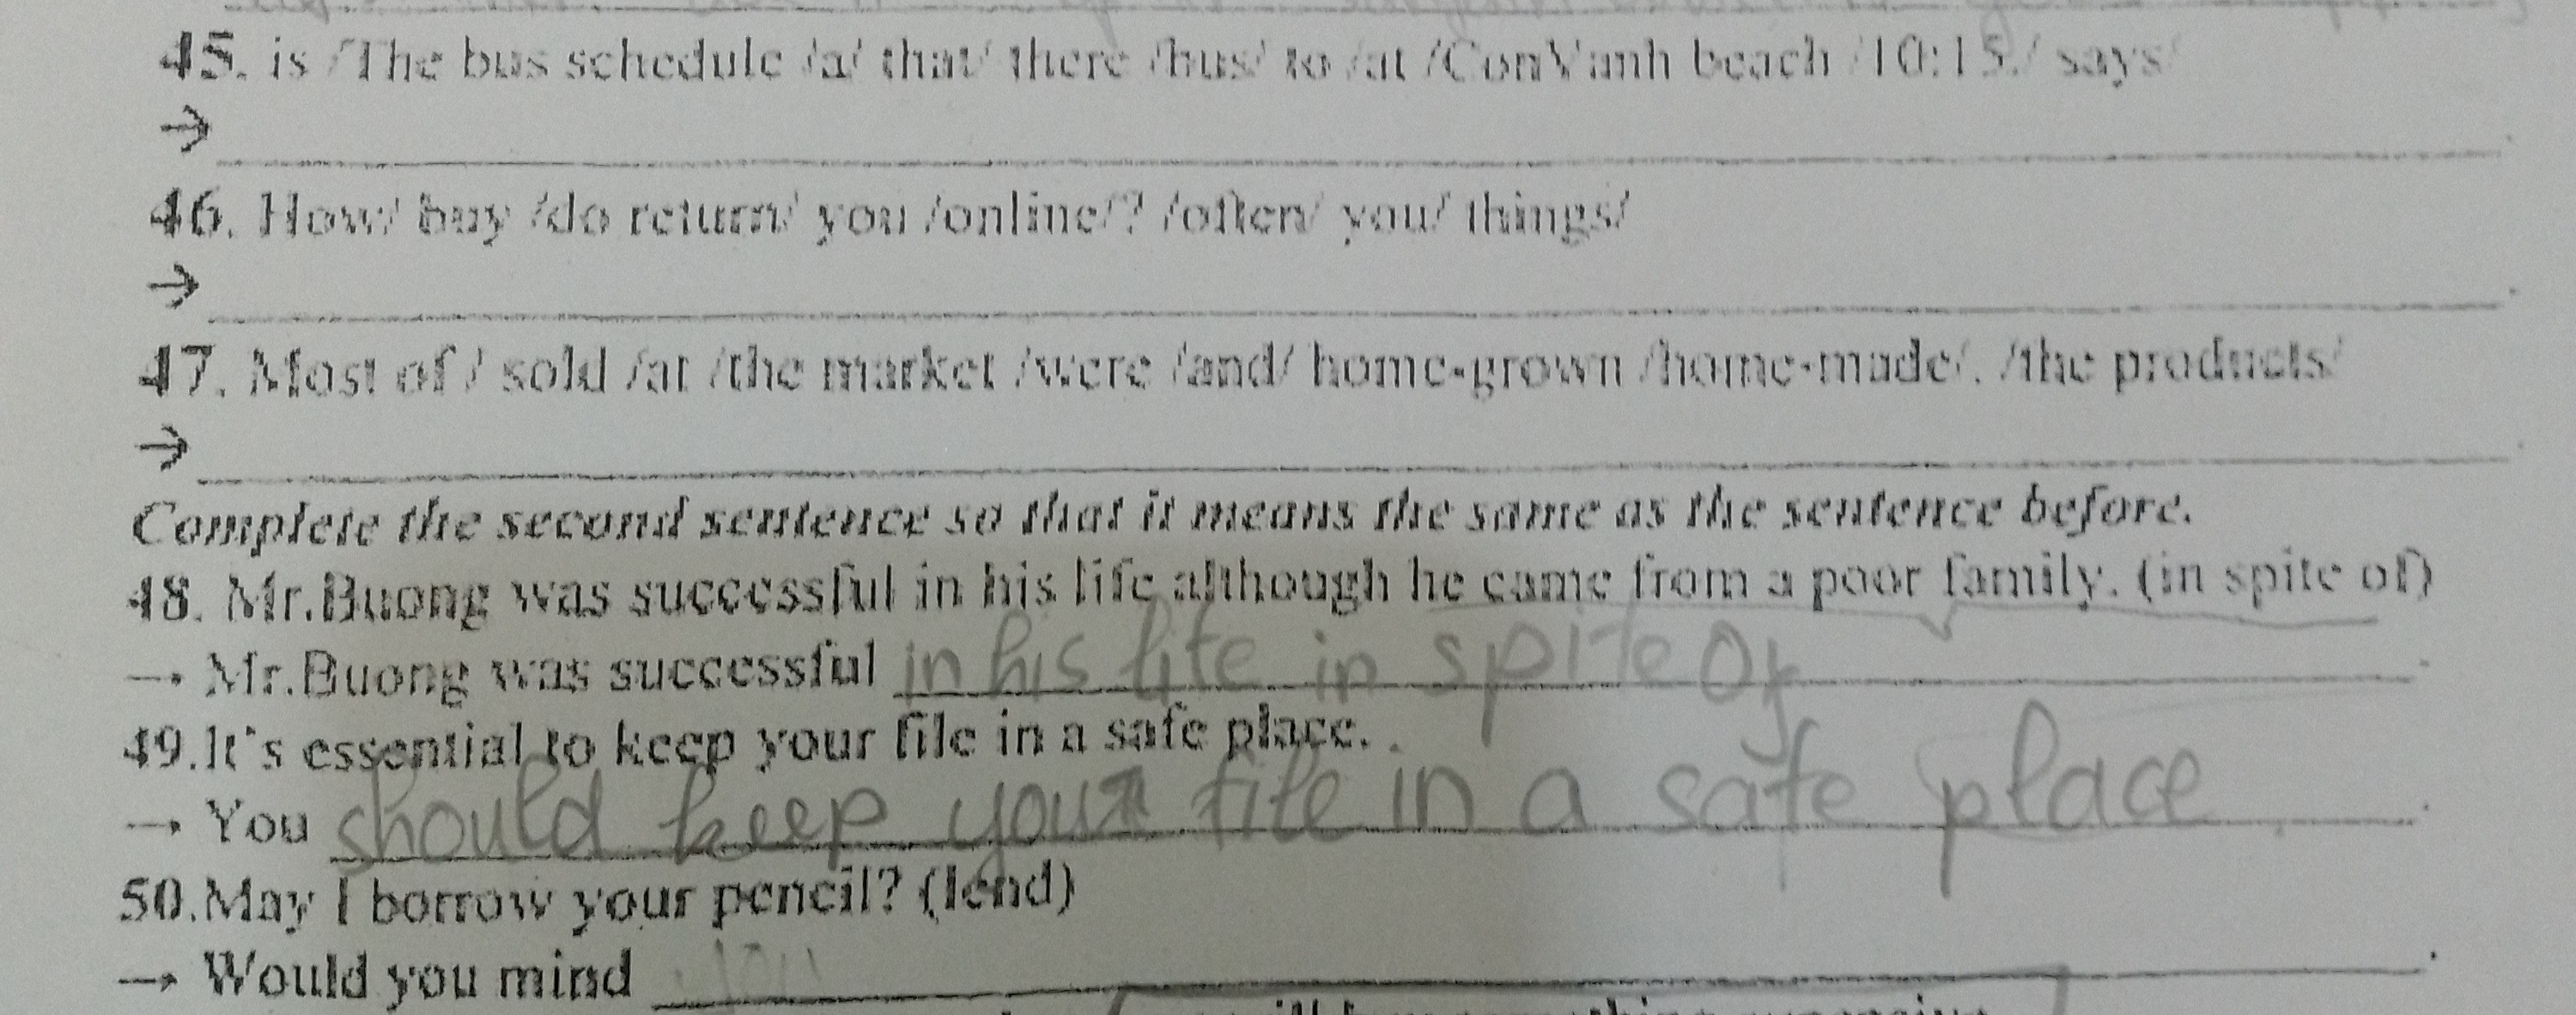 45. is /The bus schedule /a/ that/ there /bus/ to /at /ConVanh beach /10:15./ says/
→
46. How/ buy /do return/ you /online/? /often/ you/ things/
→
47. Most of / sold /at /the market /were /and/ home-grown /home-made/. /the products/
→
Complete the second sentence so that it means the same as the sentence before.
48. Mr.Buong was successful in his life although he came from a poor family. (in spite of)
→ Mr.Buong was successful in his life in spite of
49.It's essential to keep your file in a safe place.
→ You should keep your file in a safe place.
50.May I borrow your pencil? (lend)
→ Would you mind